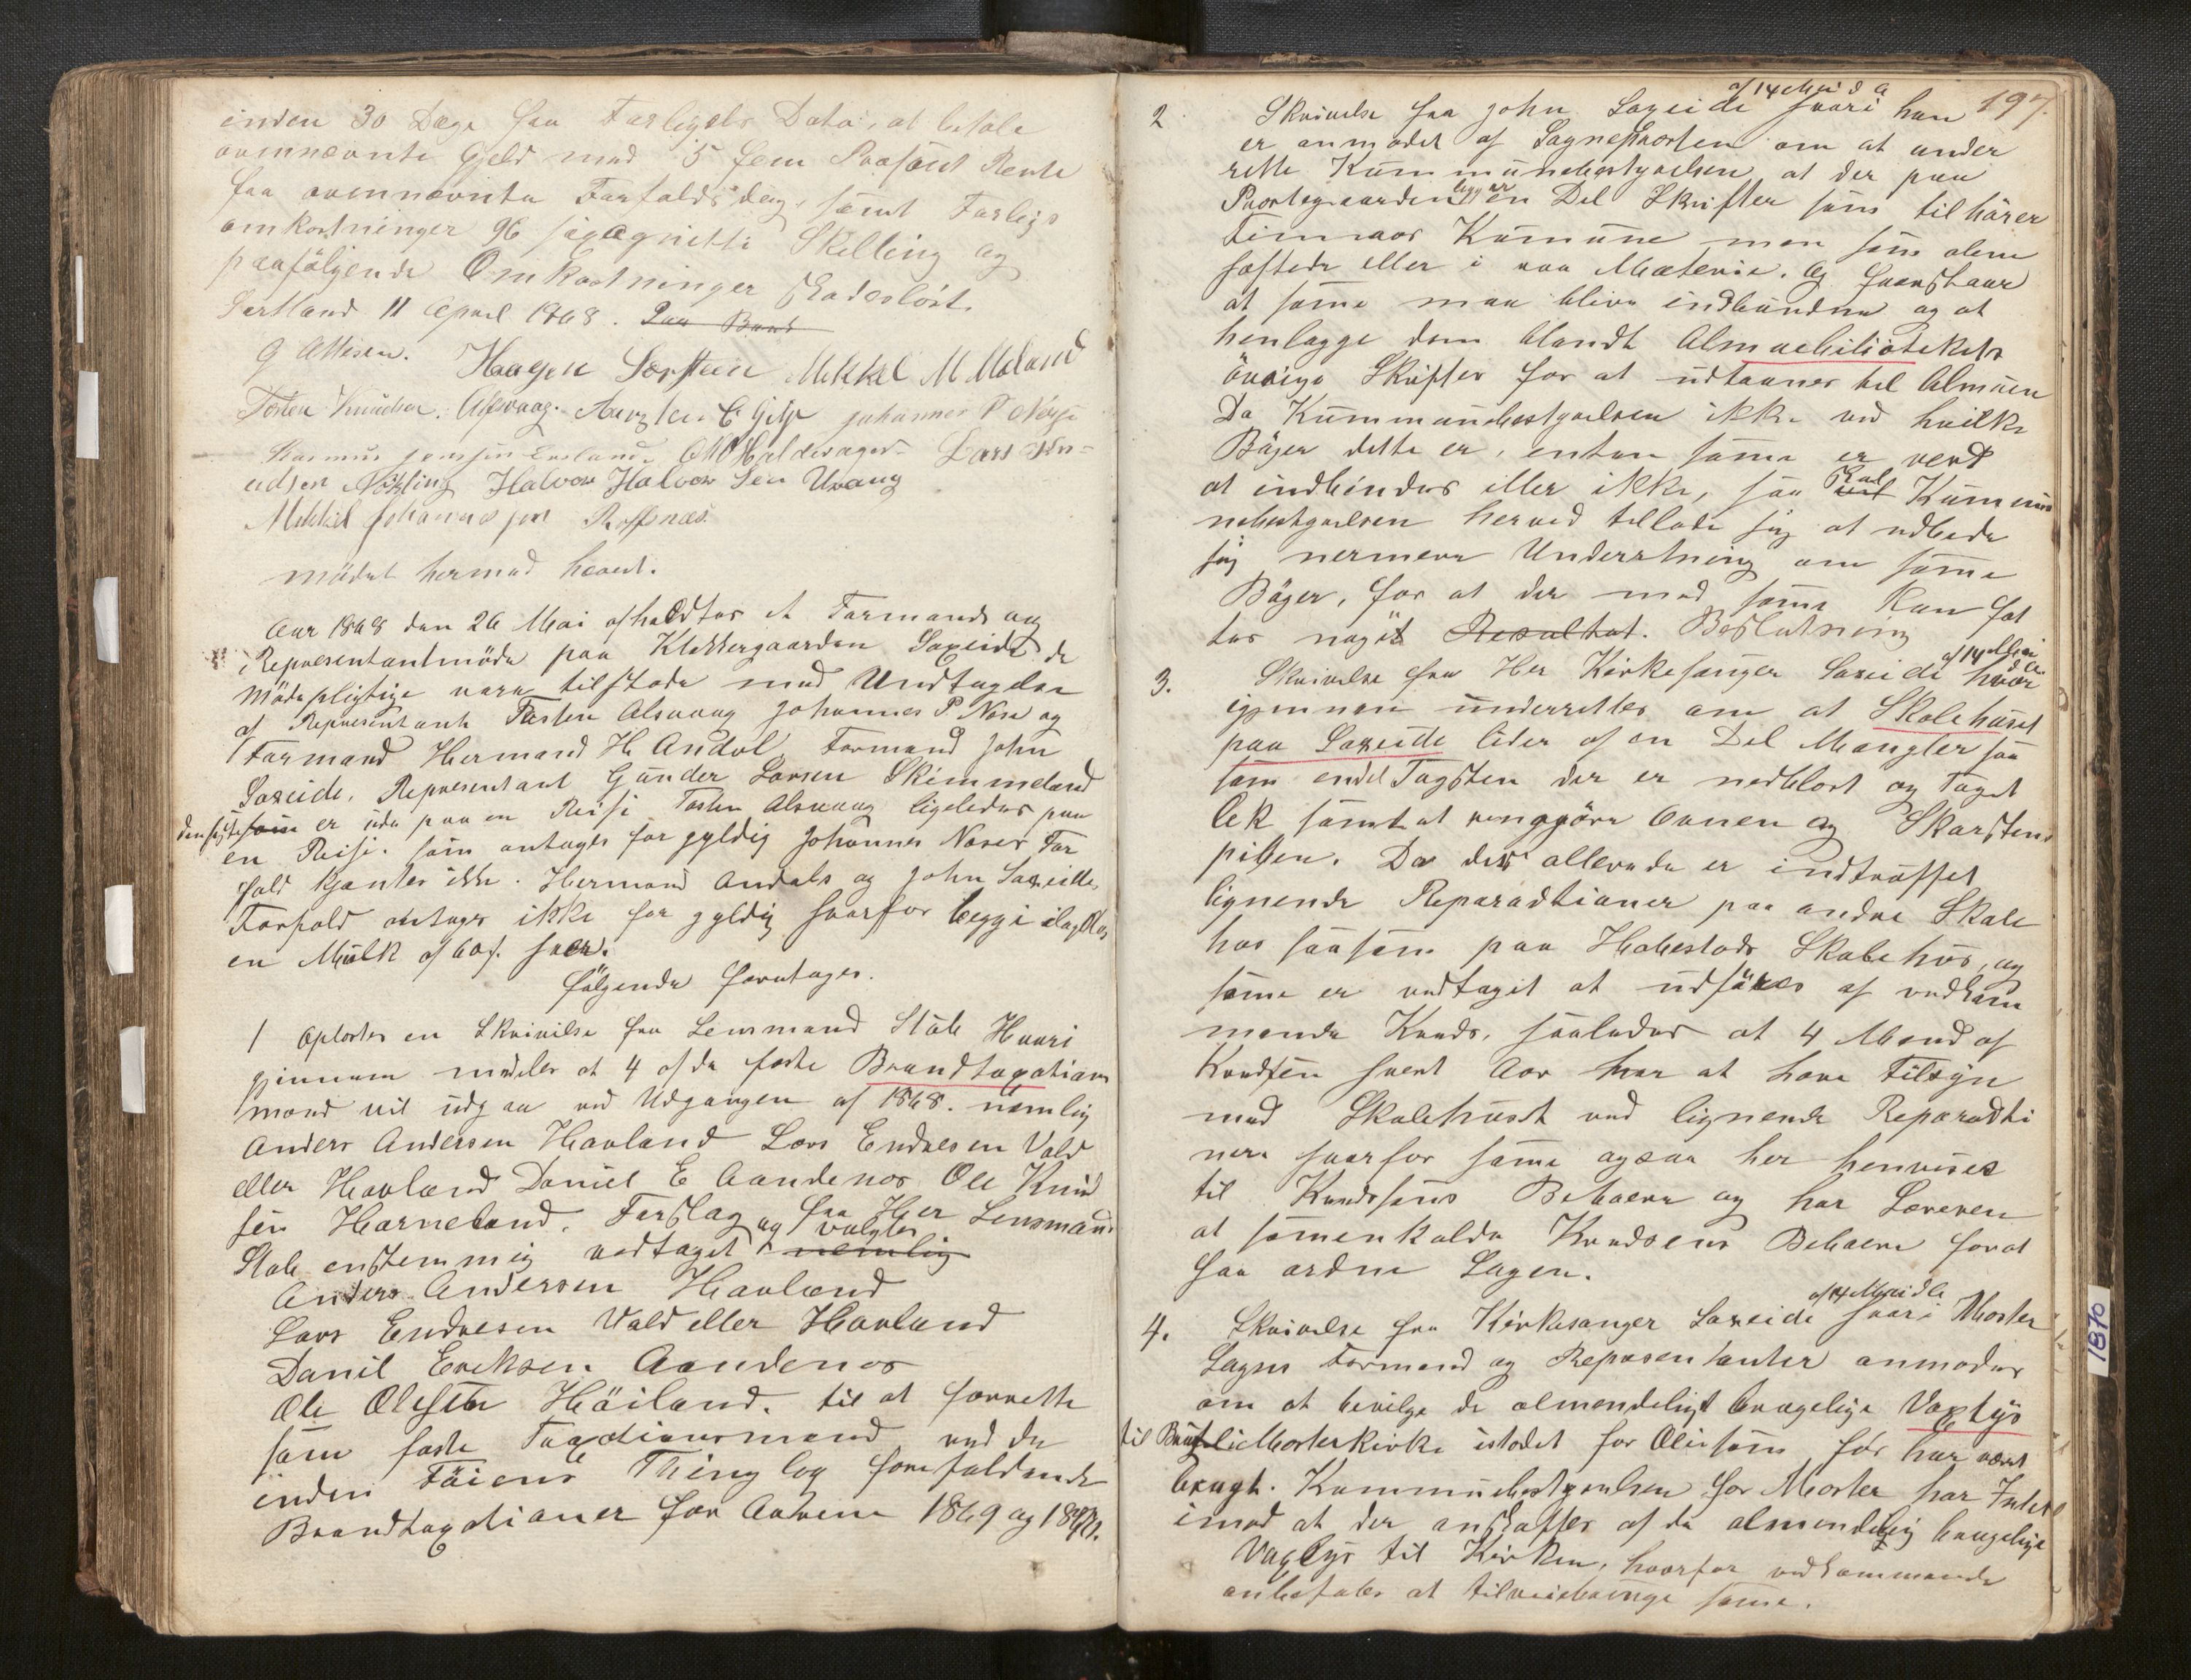 inden 30 Dage fra Forligets Dato, at betale
ovennævnte Gjeld med 5 fem Prosent Rente
fra ovennævnte Forfaldsdag, samt Forligs
omkostninger 96 Skilling og
paafölgende Omkostninger skadeslöst.
Sortland 11 April 1868. Paa
G Attesen. Haagen Mekkel M Moland
Tosten Knudsen. Alsvaag. Johannes P Nöse
Rasmus Lars Knu-
udsen Nökling Halvor Halvor Sen Uvaag
Mikkel Johannes sen
mödet hermed hævet.
Aar 1868 den 26 Mai afholdtes et Formands og
Representantmöde paa Klokkergaarden Saxeide de
Mödepligtige vare tilstede med Undtagelse
af Representant Tosten Alsvaag Johannes P Nöse og
Formand Hermand H Andal, Formand John
Saxeide, Representant Gunder Larsen Skimmeland
den sidste som er ude paa en Reise Tosten Alsvaag ligeledes paa
en Reise. som antages for gyldig Johannes Noses For
fald kjentes ikke. Hermand Andals og John Saxeides
Forfald antages ikke for gyldig hvorfor begge ilægges
en Mulk af 60 s. hver.
fölgende foretages.
1 Oplæstes en Skrivelse fra Lensmand Stale Hvori
gjennem meddeles at 4 af de faste Brandtaxations
mænd vil udgaa ved Udgangen af 1868. nemlig
Anders Andersen Havland Lars Endresen Vald
eller Havland Daniel E Aandenos Ole Knud
sen Horneland. Forslag fra Her Lensmand
Stale enstemmig vedtaget og valgtes nemlig
Anders Andersen Havland
Lars Endresen Vald eller Havland
Danil Ericksen Aandenos
Ole Olesen Höiland. til at forrette
som faste Taxtionsmænd ved de
inden Föiens Thinglag forefaldende
Brandtaxtioner for Aarene 1869 og 1870.
197.
2 Skrivelse fra John Saxeide af 14 Mai d A hvori han
er anmodet af Sogneprosten om at under
rette Kummunebestyrelsen at der paa
Prostegaarden ligger en Del Skrifter som tilhörer
Finnaas Kumune men som alene
hæftede eller i raa Materie. og
at same maa blive indbundne og at
henlægge dem blandt Almuebibliotekets
övrige Skrifter for at udlaanes til Almuen
Da Kummunebestyrelsen ikke ved hvilke
Böger dette er, enten same er verd
at indbindes eller ikke, saa skal Kummu
nebestyrelsen herved tillade sig at udbede
sig nermere Underretning om same
Böger, for at der med same kan fat
tes noget Resultat. Beslutning
3. Skrivelse fra Her Kirkesanger Saxeide af 14 Mai d A hvor
igjennem underrettes om at Skolehuset
paa Saxeide lider af en Del Mangler saa
som endel Tagsten der er nedblæst og Taget
læk samt at rengjöre Ovnen og Skorstens
piben. Da der allerede er indtruffet
lignende Reparadtioner paa andre Skole
hus saasom paa Habestads Skolehus, og
same er vedtaget at udföres af vedkom
mende Kreds, saaledes at 4 Mænd af
Kredsen hvert Aar har at have Tilsyn
med Skolehuset ved lignende Reparadti
ner hvorfor same ogsaa her henvises
til Kredsens Beboere og har Læreren
at samenkalde Kredsens Beboere forat
faa ordne Sagen.
4. Skrivelse fra Kirkesanger Saxeide af 14 Mai d A hvori Moster
Sogns Formænd og Repræsentanter anmodes
om at bevilge de almendeligt brugelige Voxlys
til Brug i Mosterkirke istedet for Olie som för har været
brugt. Kummunebestyrelsen for Moster har Intet
imod at der anskaffes af de almendelig brugelige
Voxlys til Kirken, hvorfor vedkommende
anbefales at tilveiebringe same.
1870